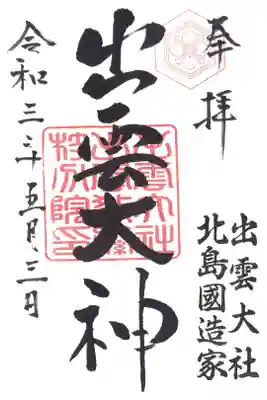 奉拝
出雲大社
北島國造家
出雲大神
令和三年五月三日